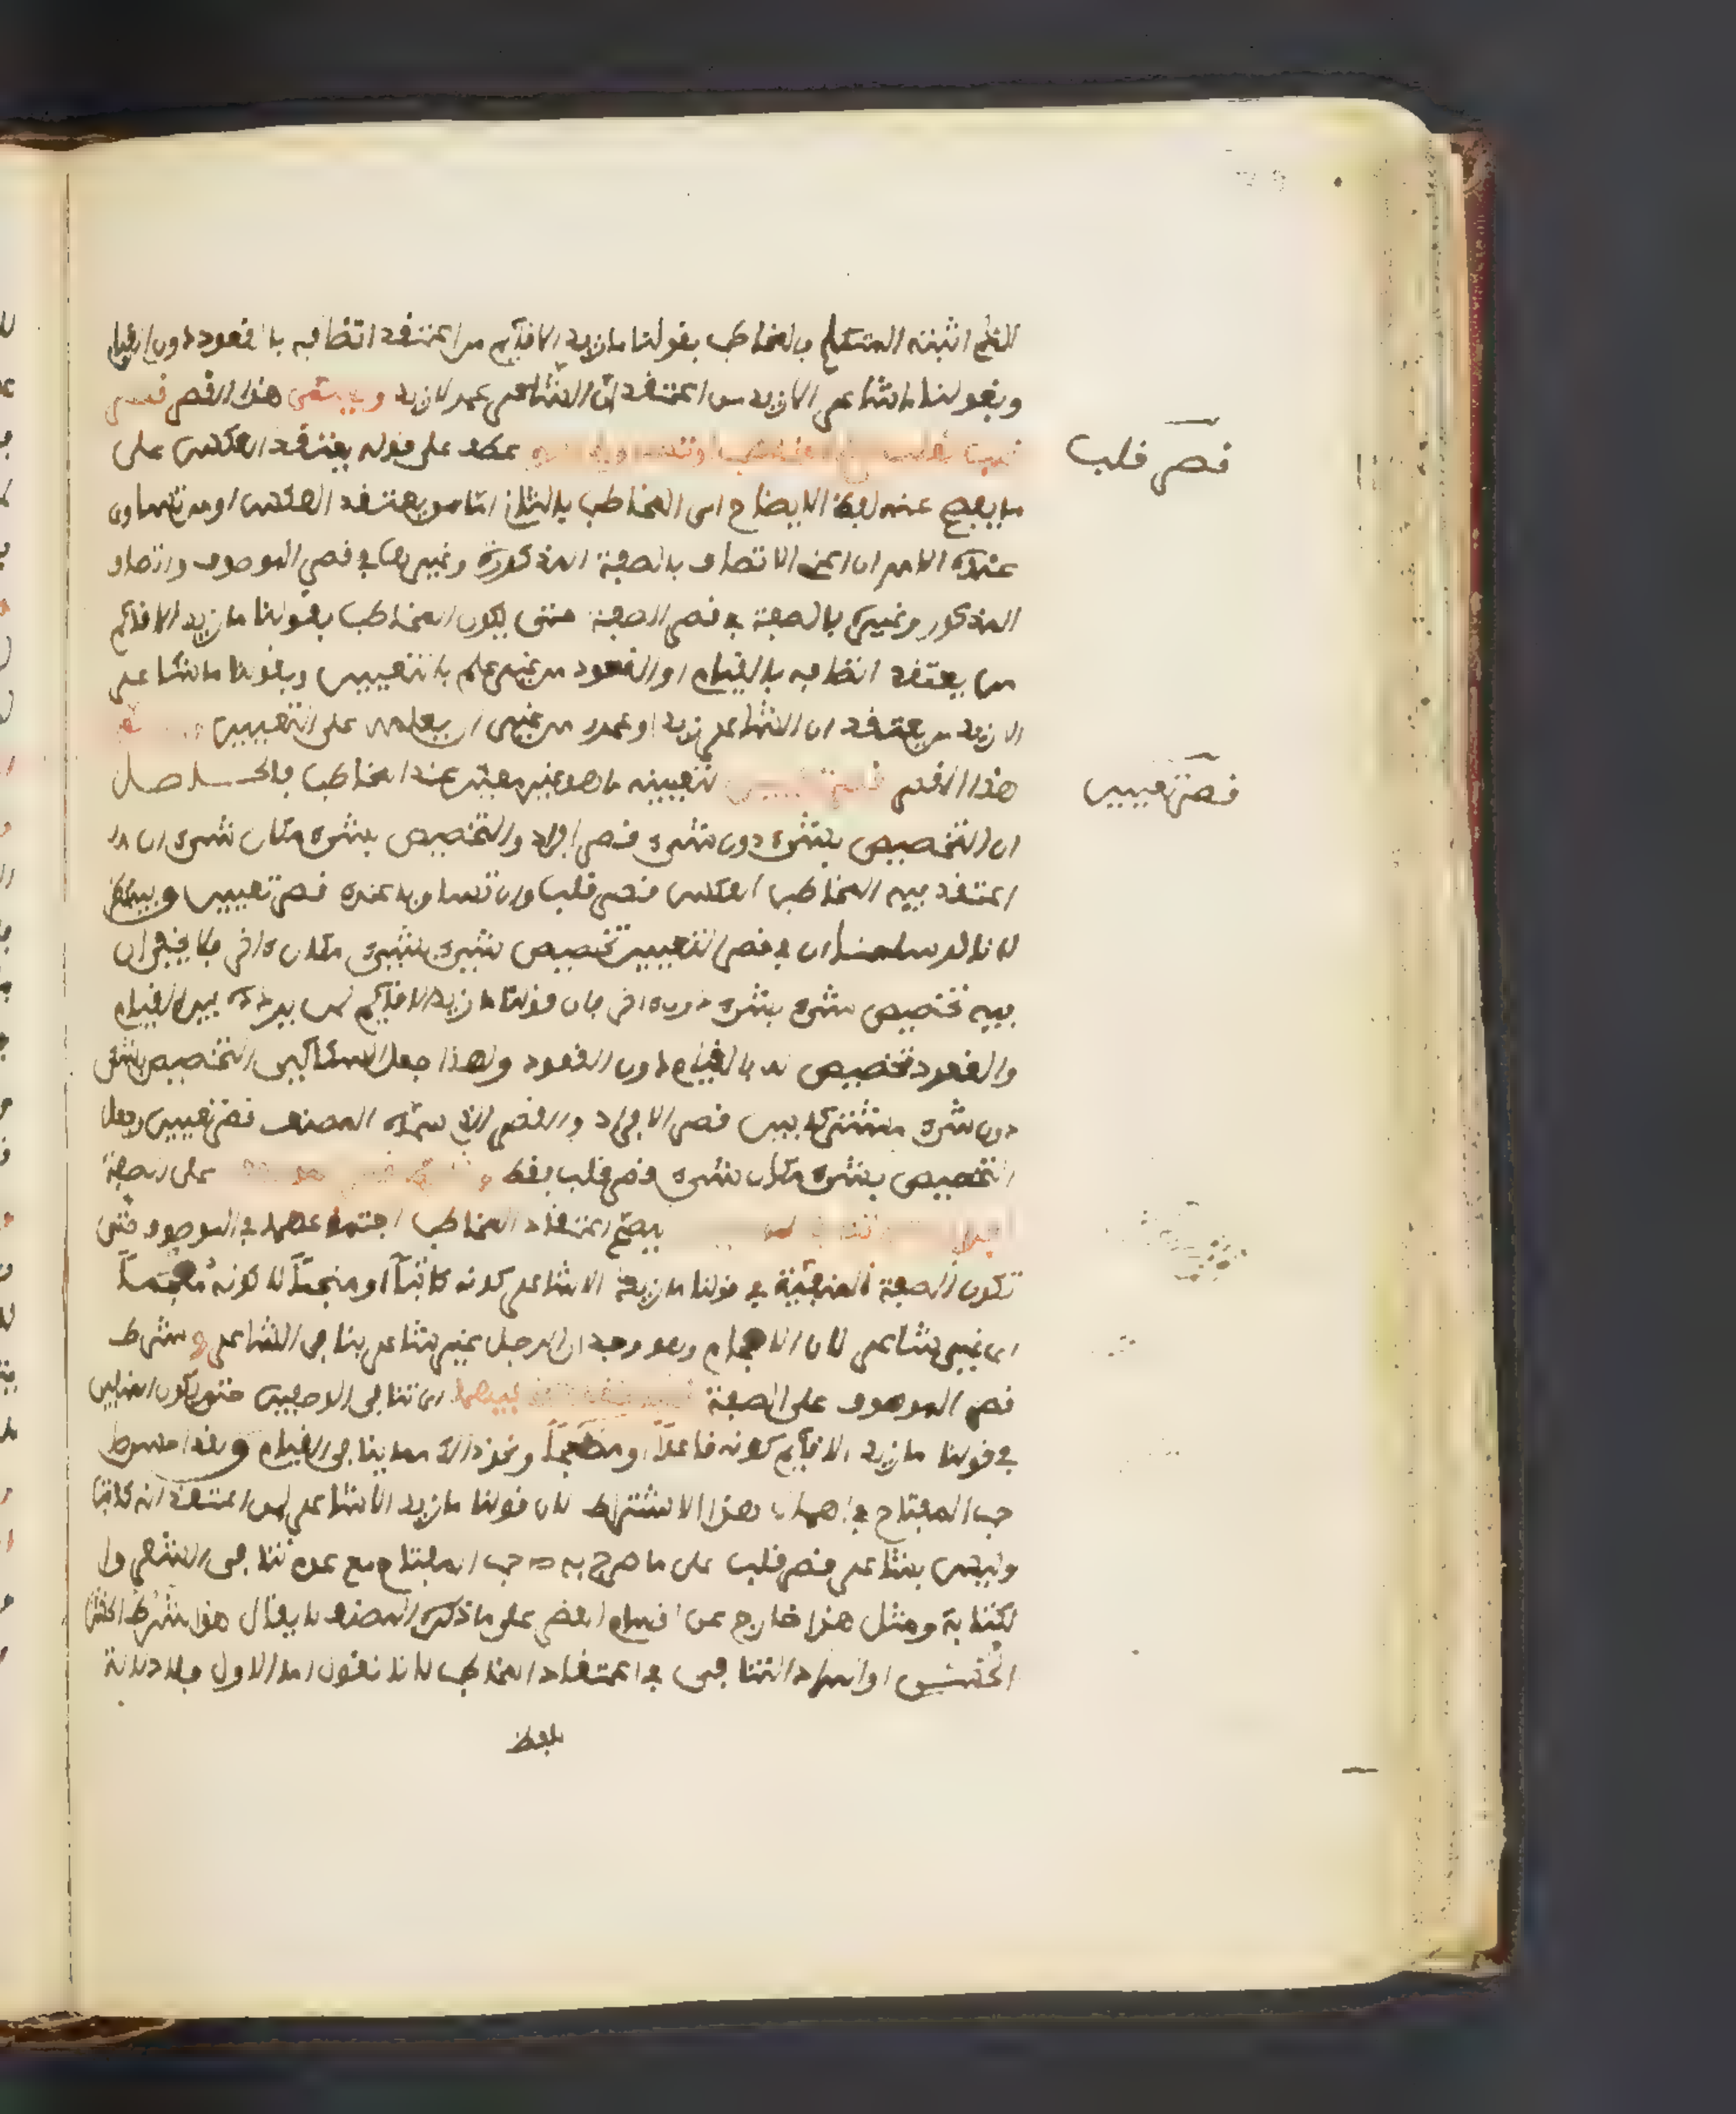 الحكم الذي اثبته المتكلم فالمخاطب بقولنا ما زيد الا قائم من اعتقد اتصافه بالقعود دون القيام
وبقولنا ما شاعر الا زيد من اعتقد ان الشاعر عمرو لا زيد ويسمى هذا القصر قصر
قلب لقلب حكم المخاطب او تساويا عنده عطف على قوله يعتقد العكس على
ما يفصح عنه لفظ الايضاح اى المخاطب بالثانى اما من يعتقد العكس او من تساوى
عنده الامران اعنى الاتصاف بالصفة المذكورة وغيرها فى قصر الموصوف واتصاف
المذكور وغيره بالصفة فى قصر الصفة حتى يكون المخاطب بقولنا ما زيد الا قائم
من يعتقد اتصافه بالقيام او القعود من غير علم بالتعيين وبقولنا ما شاعر
الا زيد من يعتقد ان الشاعر زيد او عمرو من غير ان يعلمه على التعيين
قصر قلب
هذا القصر قصر تعيين لتعيينه ما هو غير معين عند المخاطب فالحاصل
قصر تعيين
ان التخصيص بشىء دون شىء قصر افراد والتخصيص بشىء مكان شىء ان
اعتقد فيه المخاطب العكس قصر قلب وان تساويا عنده قصر تعيين وفيه نظر
لانا لو سلمنا ان فى قصر التعيين تخصيص شىء بشىء مكان اخر فلا يخفى ان
فيه تخصيص شىء بشىء دون اخر فان قولنا ما زيد الا قائم لمن يردده بين القيام
والقعود تخصيص له بالقيام دون القعود ولهذا جعل السكاكى التخصيص بشىء
دون شىء مشتركا بين قصر الافراد والقصر الذى سماه المصنف قصر تعيين وجعل
التخصيص بشىء مكان شىء قصر قلب فقط وشرط قصر الموصوف على الصفة
افرادا عدم تنافى الوصفين ليصح اعتقاد المخاطب اجتماعهما فى الموصوف حتى
تكون الصفة المنفية فى قولنا ما زيد الا شاعر كونه كاتبا او منجما لا كونه مفحما
اى غير شاعر لان الافحام وهو وجدان الرجل غير شاعر ينافى الشاعرية وشرط
قصر الموصوف على الصفة قلبا تحقق تنافيهما اى تنافى الوصفين حتى يكون المنفى
فى قولنا ما زيد الا قائم كونه قاعدا او مضطجعا ونحو ذلك مما ينافى القيام ولقد احسن صا
حب المفتاح فى اهمال هذا الاشتراط لان قولنا ما زيد الا شاعر لمن اعتقد انه كاتب
وليس بشاعر قصر قلب على ما صرح به صاحب المفتاح مع عدم تنافى الشعر وا
لكتابة ومثل هذا خارج عن اقسام القصر على ما ذكره المصنف لا يقال هذا شرط الحسن
الحسن او المراد التنافى فى اعتقاد المخاطب لانا نقول اما الاول فلا دلالة
للفظ